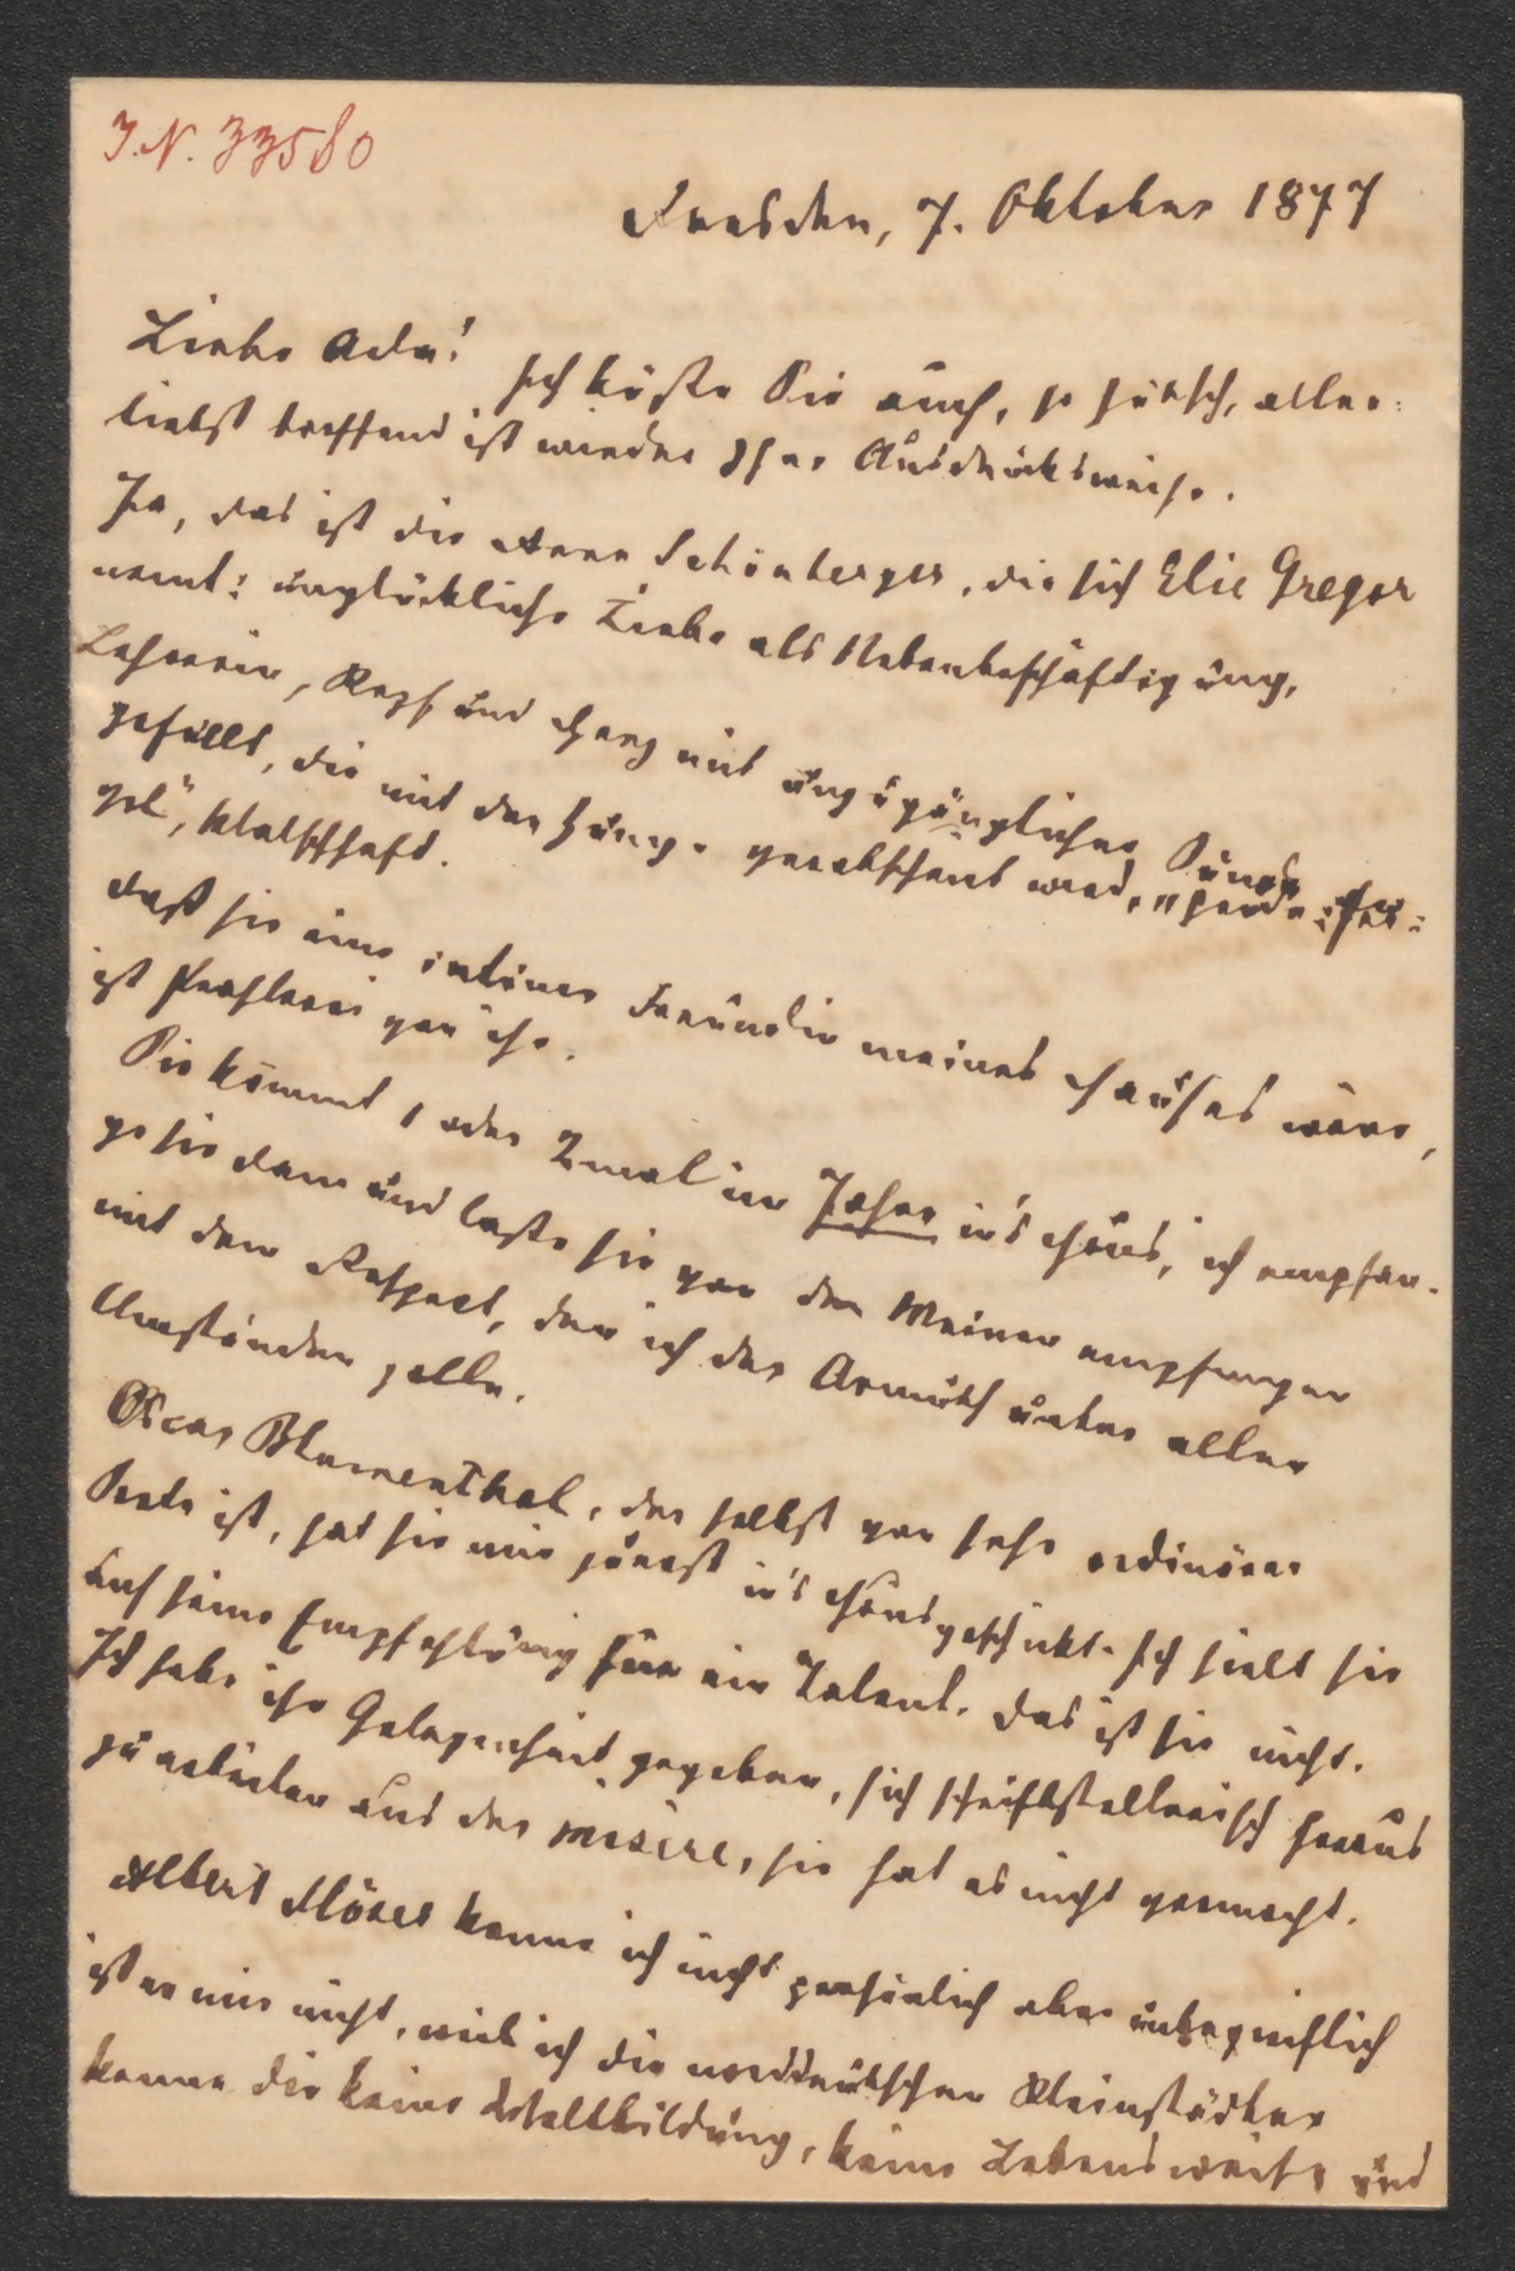 J.N. 33580
Dresden, 7. Oktober 1877
Liebe Ada!
Ich küße Sie auch, so hübsch, aller-
liebst treffend ist wieder Ihre Ausdruksweise.
Ja, das ist die Anna Schönberger, die sich Elie Gregor
nennt: unglückliche Liebe als Nebenbeschäftigung,
Lehrerin, Kopf und Herz mit unzugänglicher Sünde
gefüllt, die mit der Zunge verabscheut wird,
klatschhaft.
Daß sie eine intime Freundin meines Hauses wäre,
ist Prahlerei von ihr.
Sie kommt 1 oder 2mal im Jahre in's Haus, ich empfan-
ge sie dann und laße sie von den Meinen empfangen
mit dem Respect, den ich der Armuth unter allen
Umständen zolle.
Oscar Blumenthal, der selbst von sehr ordinärer
Seele ist, hat sie mir zuerst in's Haus geschickt. Ich hielt sie
auf seine Empfehlung für ein Talent. Das ist sie nicht.
Ich habe ihr Gelegenheit gegeben, sich schriftstellerisch heraus
zu arbeiten aus der misère, sie hat es nicht vermocht.
Albert Möser kenne ich nicht persönlich aber unbegreiflich
ist er mir nicht, weil ich die norddeutschen Kleinstädter
kenne die keine Weltbildung, keine Lebensweise und